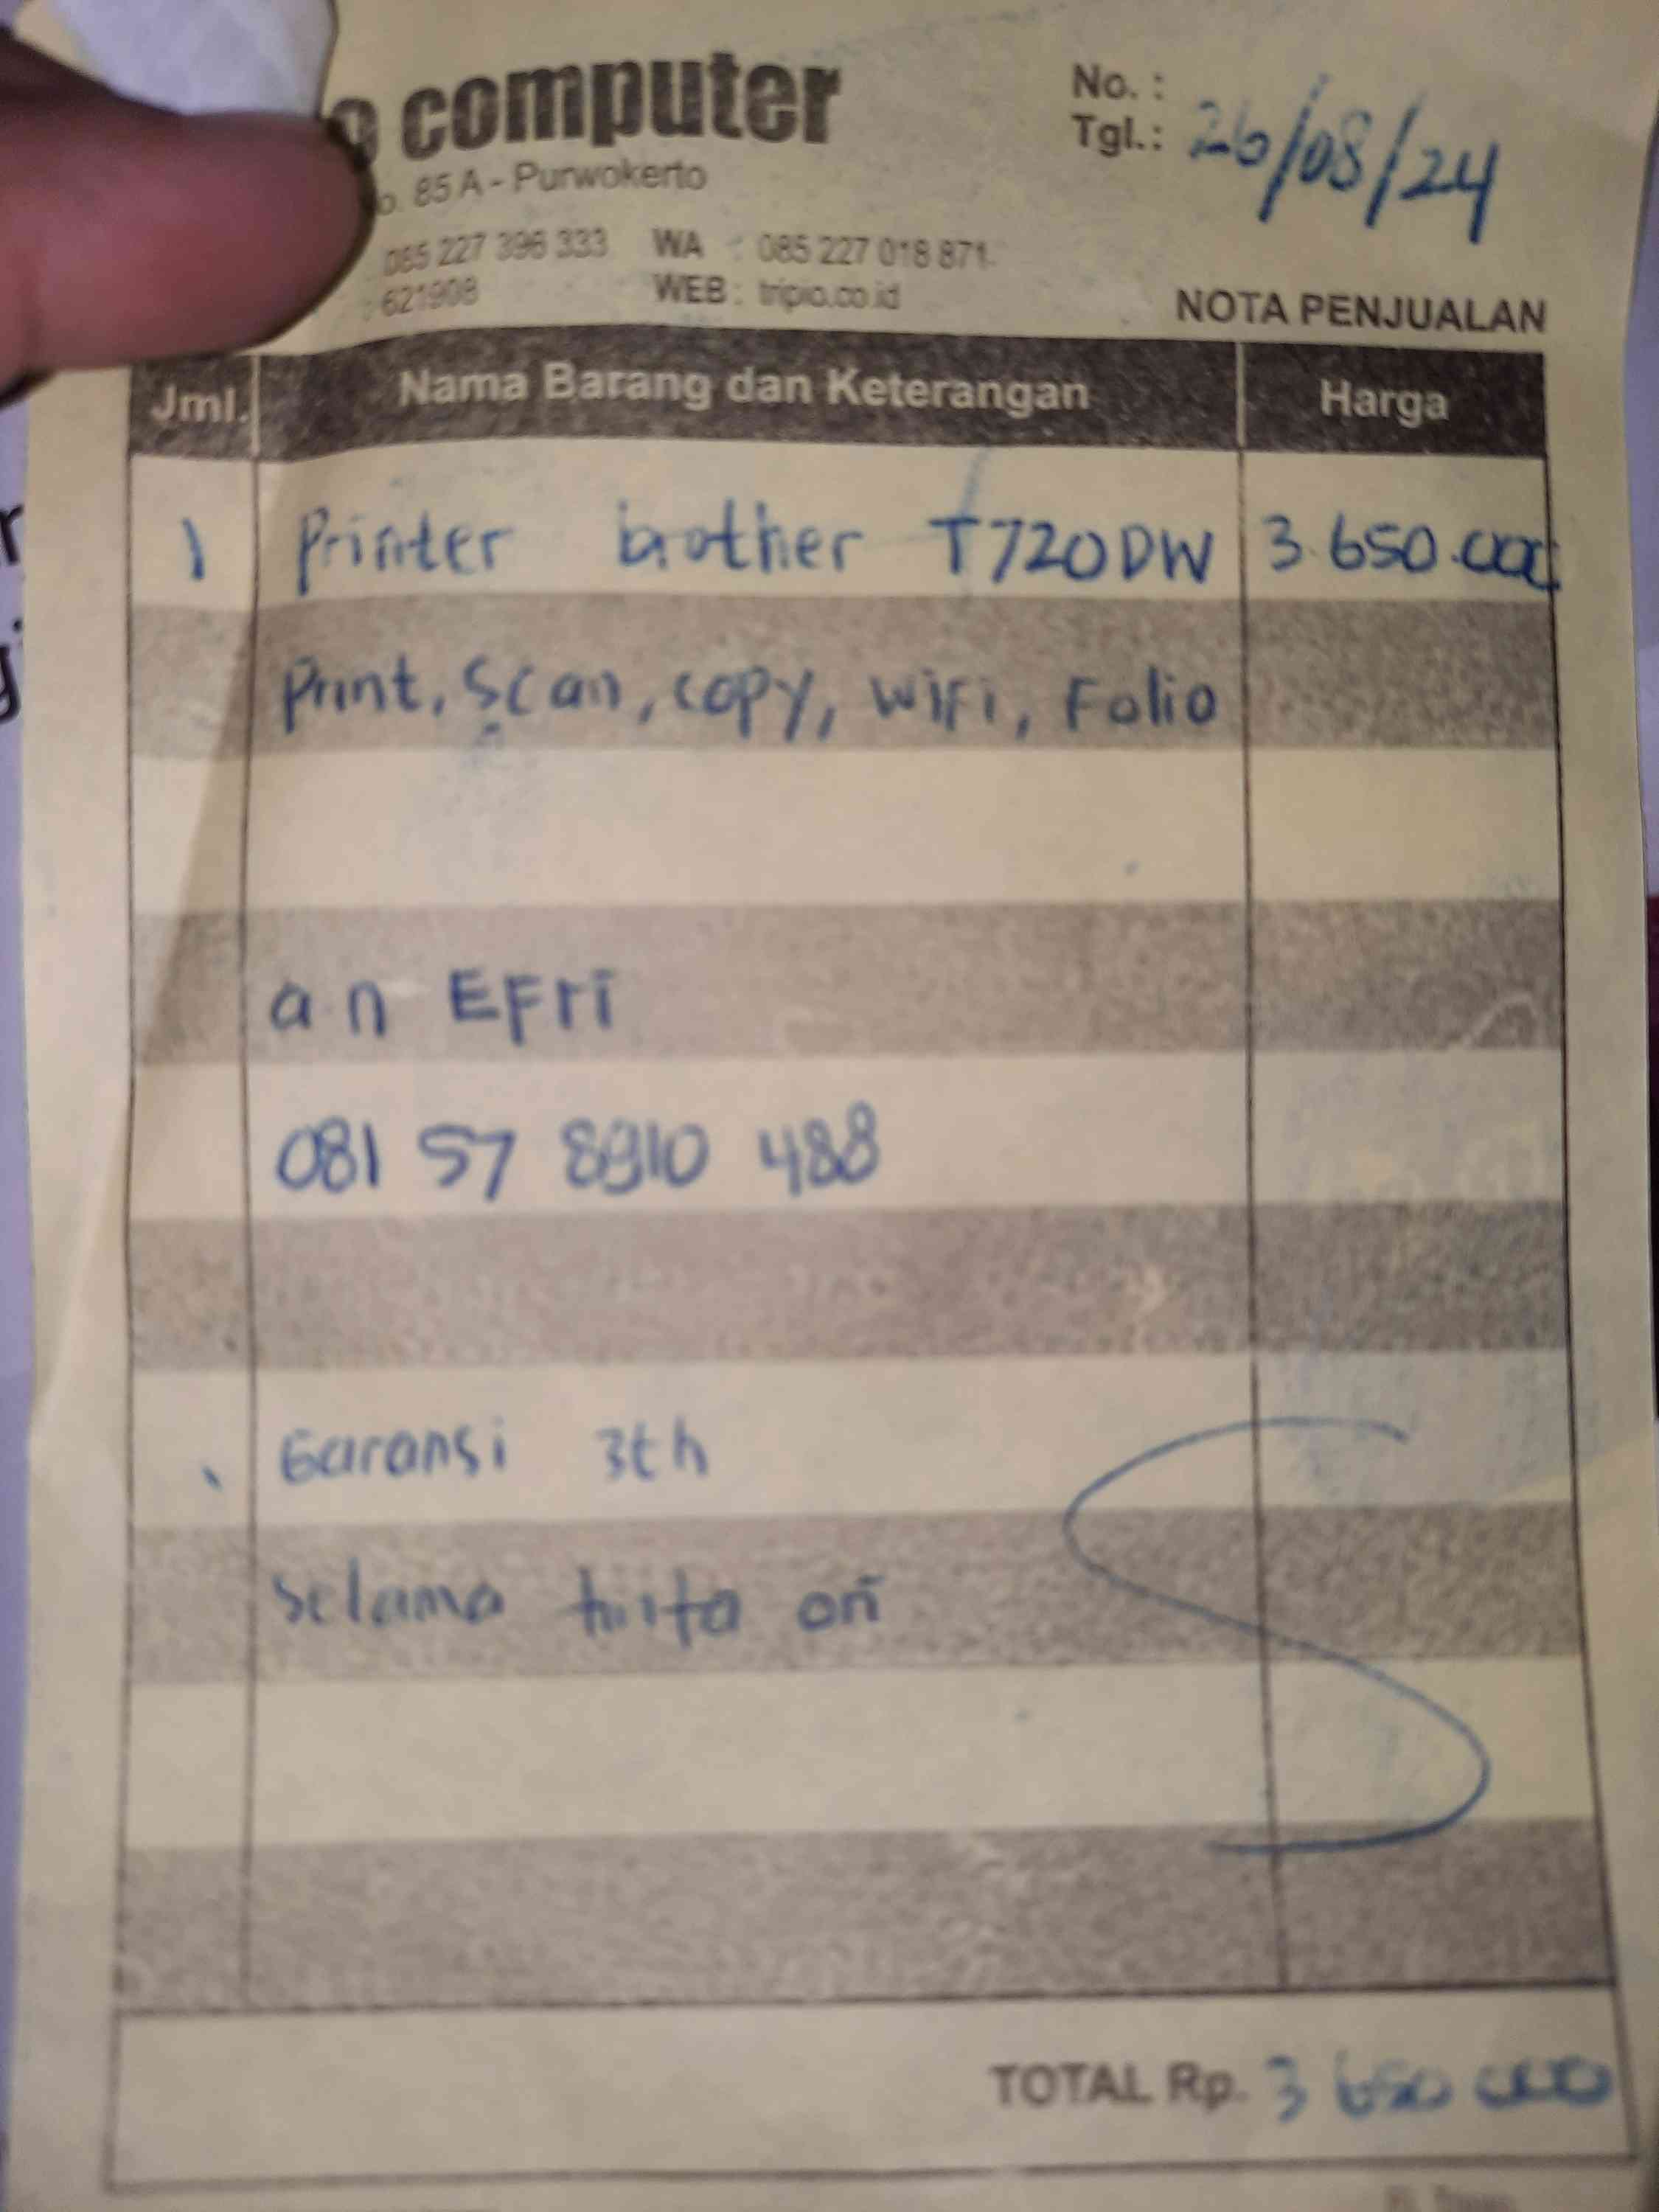 computer
No. :
Tgl.: 26/08/24
85 A - Purwokerto
085 227 396 333 WA : 085 227 018 871
: 621908 WEB : tripio.co.id
NOTA PENJUALAN
Jml. Nama Barang dan Keterangan Harga
1 Printer brother T720DW 3.650.000
Print, Scan, copy, wifi, Folio
a.n EFri
081 57 8810 488
Garansi 3th
selama tinta ori
TOTAL Rp. 3 650 000